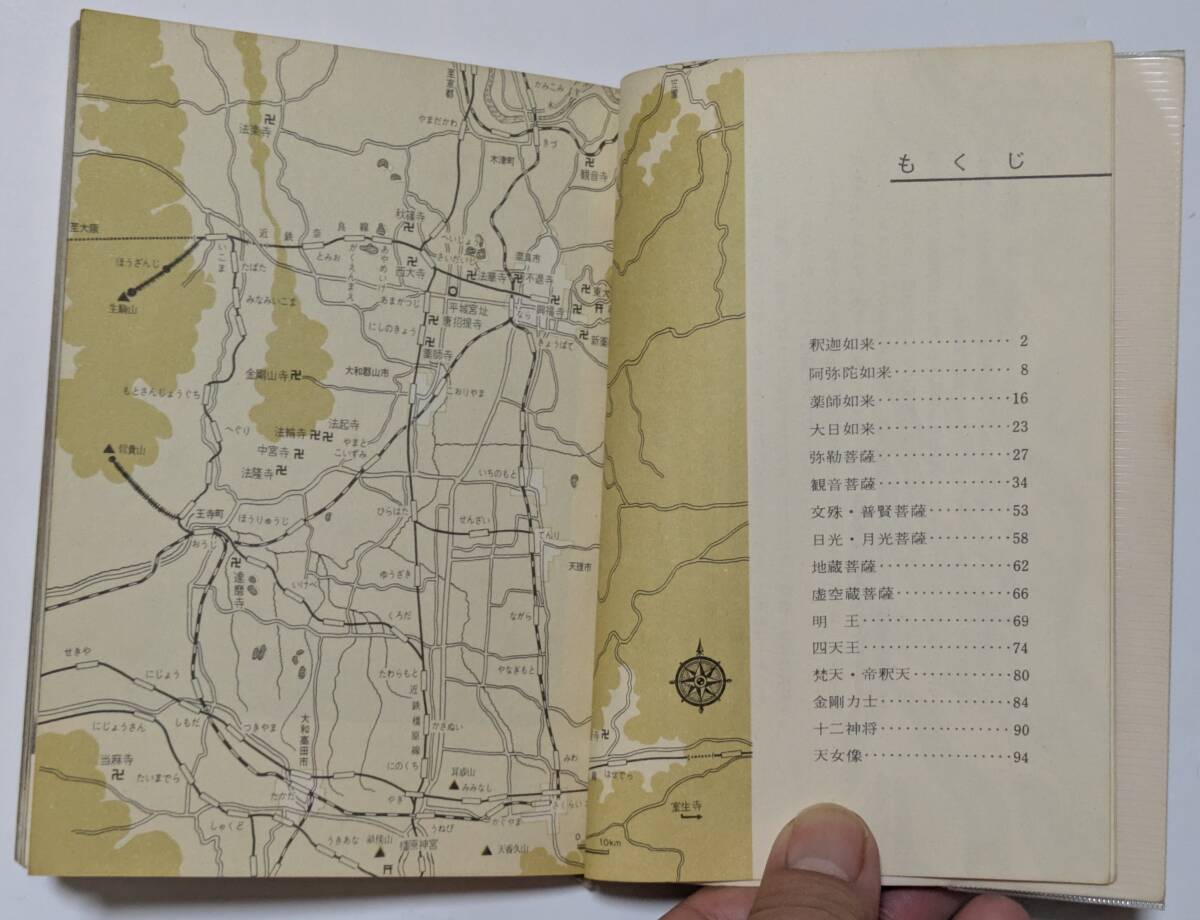 至京都
かみこみ
やまだかわ
法楽寺
きづ
木津町
観音寺
至大阪
近鉄奈良線
秋篠寺
へいじょう
さいだいじ
奈良市
ほうざんじ
いこま
たばた
とみお
がくえんまえ
あやめいけ
西大寺
法華寺
不退寺
東大
生駒山
みなみいこま
あまがつじ
平城宮址
唐招提寺
なら
興福寺
新薬
にしのきょう
きょうばて
薬師寺
金剛山寺
大和郡山市
もとさんじょうぐち
こおりやま
へぐり
法起寺
法輪寺
やまと
こいずみ
信貴山
中宮寺
法隆寺
いちのもと
王寺町
ほうりゅうじ
ひらはた
せんざい
おうじ
てんり
達磨寺
いけべ
ゆうざき
天理市
くろだ
ながら
せきや
にじょう
たわらもと
やなぎもと
近鉄橿原線
にじょうさん
しもだ
つきやま
大和高田市
かさぬい
みわ
にのくち
はせでら
当麻寺
たいまでら
耳成山
みみなし
たかだ
やぎ
さくらい
室生寺
しゃくど
うきあな
うねび
かぐやま
畝傍山
橿原神宮
天香久山
0
10km
もくじ
釈迦如来················2
阿弥陀如来··············8
薬師如来················16
大日如来················23
弥勒菩薩················27
観音菩薩················34
文殊・普賢菩薩··········53
日光・月光菩薩··········58
地蔵菩薩················62
虚空蔵菩薩··············66
明　王··················69
四天王··················74
梵天・帝釈天············80
金剛力士················84
十二神将················90
天女像··················94